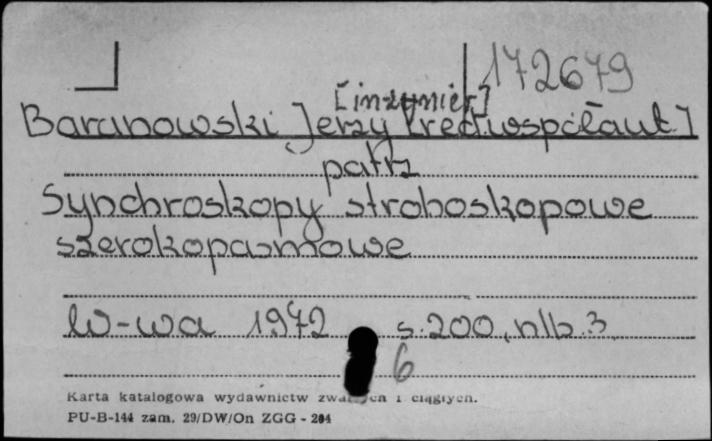 172679
[inżynier]
Baranowski Jerzy [red. współaut.]
patrz
Synchroskopy stroboskopowe
szerokopasmowe
W-wa 1972 s. 200, nlb. 3
6
Karta katalogowa wydawnictw zwartych i ciągłych.
PU-B-144 zam. 29/DW/On ZGG - 204